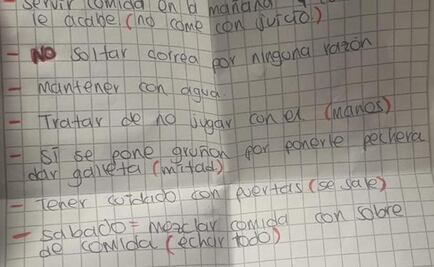 - servir comida en la mañana y
le acabe (no come con juicio)
- NO soltar correa por ninguna razón
- Mantener con agua.
- Tratar de no jugar con el (manos)
- si se pone gruñon por ponerle pechera
dar galleta (mitad)
- Tener cuidado con puertas (se sale)
- sabado = mezclar comida con sobre
de comida (echar todo)